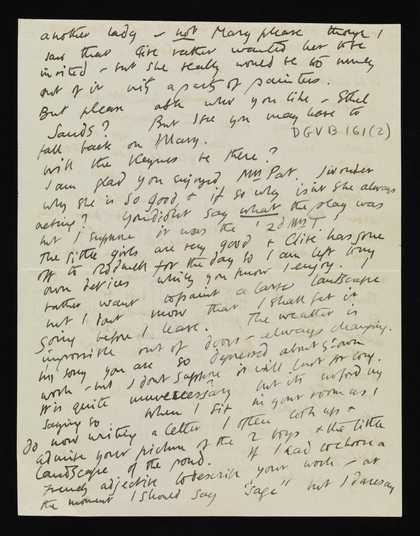 another lady – not Mary please though I
saw that Clive rather wanted her to be
invited – but she really would be too much
out of it with a party of painters.
But please ask who you like – Ethel
Sands? But I see you may have to
D G V B 161 (2)
fall back on Mary.
Will the Keynes be there?
I am glad you enjoyed Mrs Pat. I wonder
why she is so good & if so why isn't she always
acting? You didn't say what the play was
but I suppose it was the '2d Mrs T.
The little girls are very good & Clive has gone
off to Rodmell for the day so I am left to my
own devices which you know I enjoy. I
rather want to paint a large landscape
but I don't know that I shall get it
going before I leave. The weather is
impossible out of doors – always changing.
I'm sorry you are so depressed about your own
work – but I don't suppose it will last for long.
It is quite unnecessary but it's no good my
saying so. When I sit in your room as I
do now writing a letter I often look up &
admire your picture of the 2 boys & the little
landscape of the pond. If I had to choose a
trendy adjective to describe your work – at
the moment I should say "sage" but I daresay